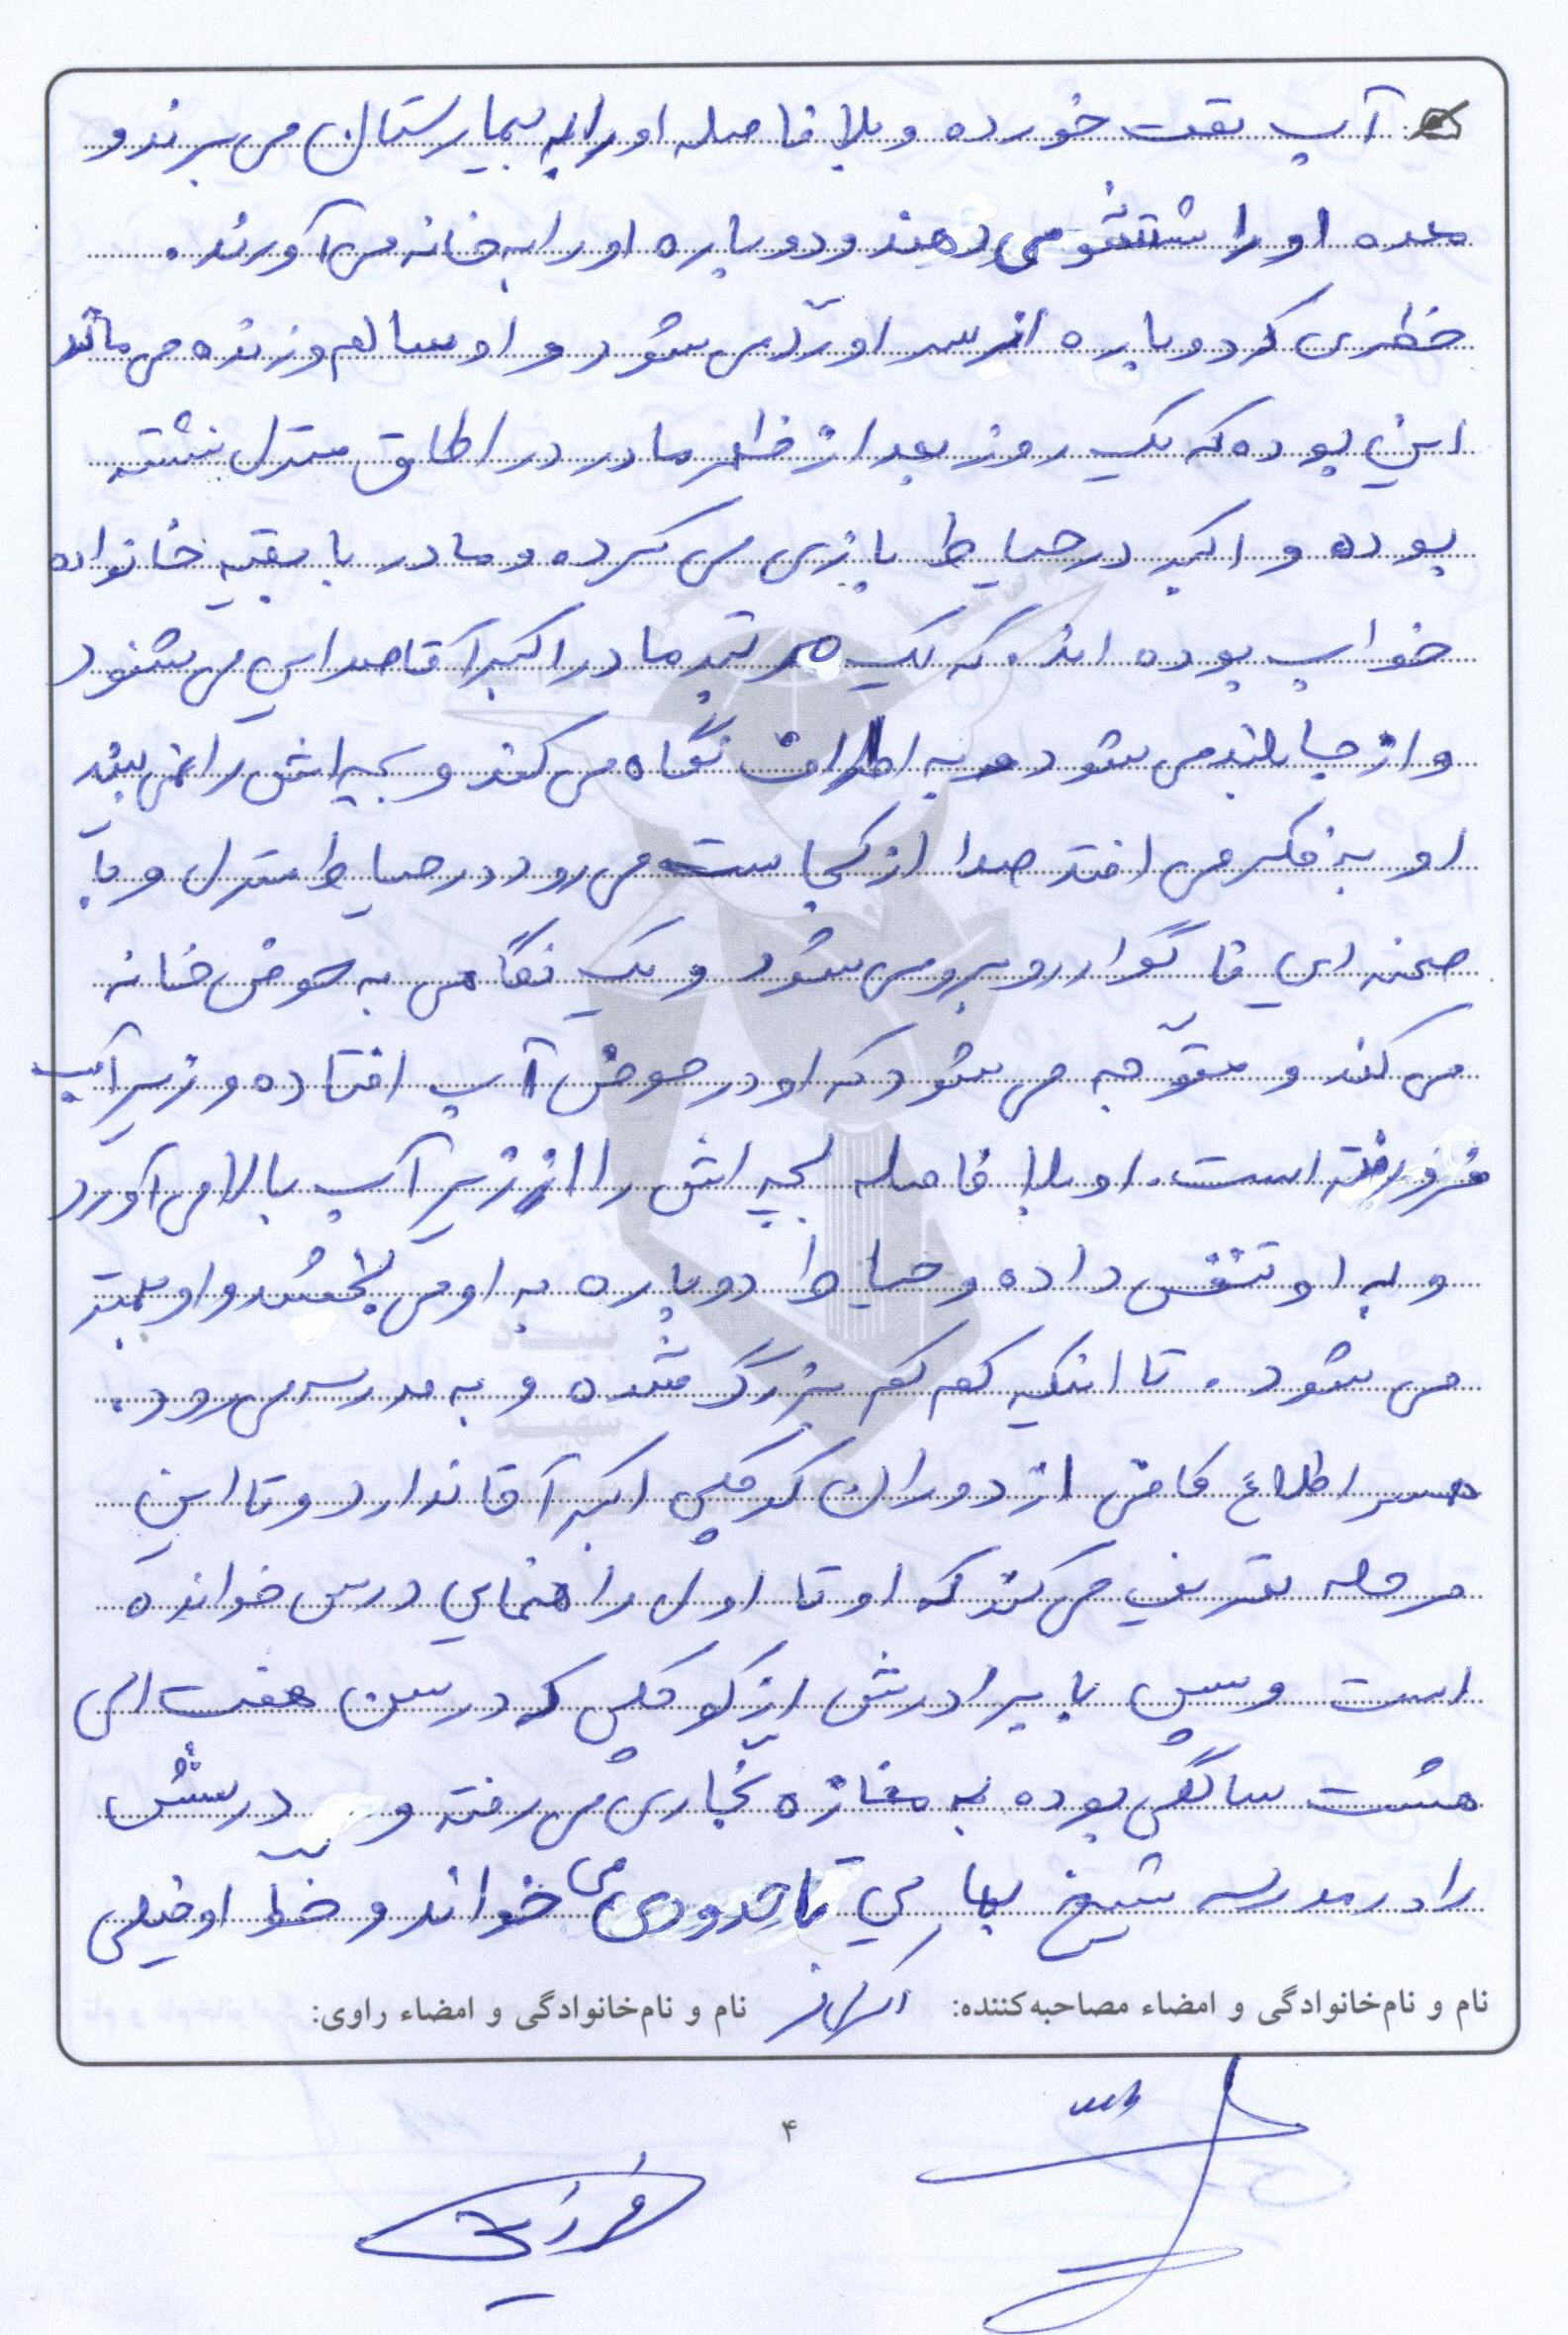 آب نفت خورده و بلا فاصله او را به بیمارستان می برند و
معده او را شتشو می دهند و دوباره او را به خانه می آورند.
خطری که دوباره از سر او رد می شود و او سالم و زنده می ماند
این بوده که یک روز بعد از ظهر مادر در اطاق منزل نشته
بوده و اکبر در حیاط بازی می کرده و مادر با بقیه خانواده
خواب بوده اند. که یک مرتبه مادر اکبر آقا صدایی می شنود
و از جا بلند می شود و به اطراف نگاه می کند و بچه اش را نمی بیند
او به فکر می افتد صدا از کجاست می رود در حیاط منزل و با
صحنه ای ناگوار روبرو می شود و یک نگاهی به حوض خانه
می کند و متوّجه می شود که او در حوض آب افتاده و زیر آب
فرو رفته است. او بلا فاصله بچه اش را از زیر آب بالا می آورد
و به او تنفس داده و حیاط دوباره به او می بخشد و او بهتر
می شود. تا اینکه کم کم بزرگ شده و به مدرسه می رود.
همسر اطلاع کافی از دوران کودکی اکبر آقا ندارد و تا این
مرحله تعریف می کند که او تا اول راهنمایی درس خوانده
است و سپس با برادرش از کودکی که در سن هفت الی
هشت سالگی بوده به مغازه نجّاری می رفته و درسش
را در مدرسه شیخ بهایی تا حدودی می خواند و خطّ او خیلی
نام و نام‌خانوادگی و امضاء مصاحبه‌کننده: نام و نام‌خانوادگی و امضاء راوی:
۴
بنیاد
شهید